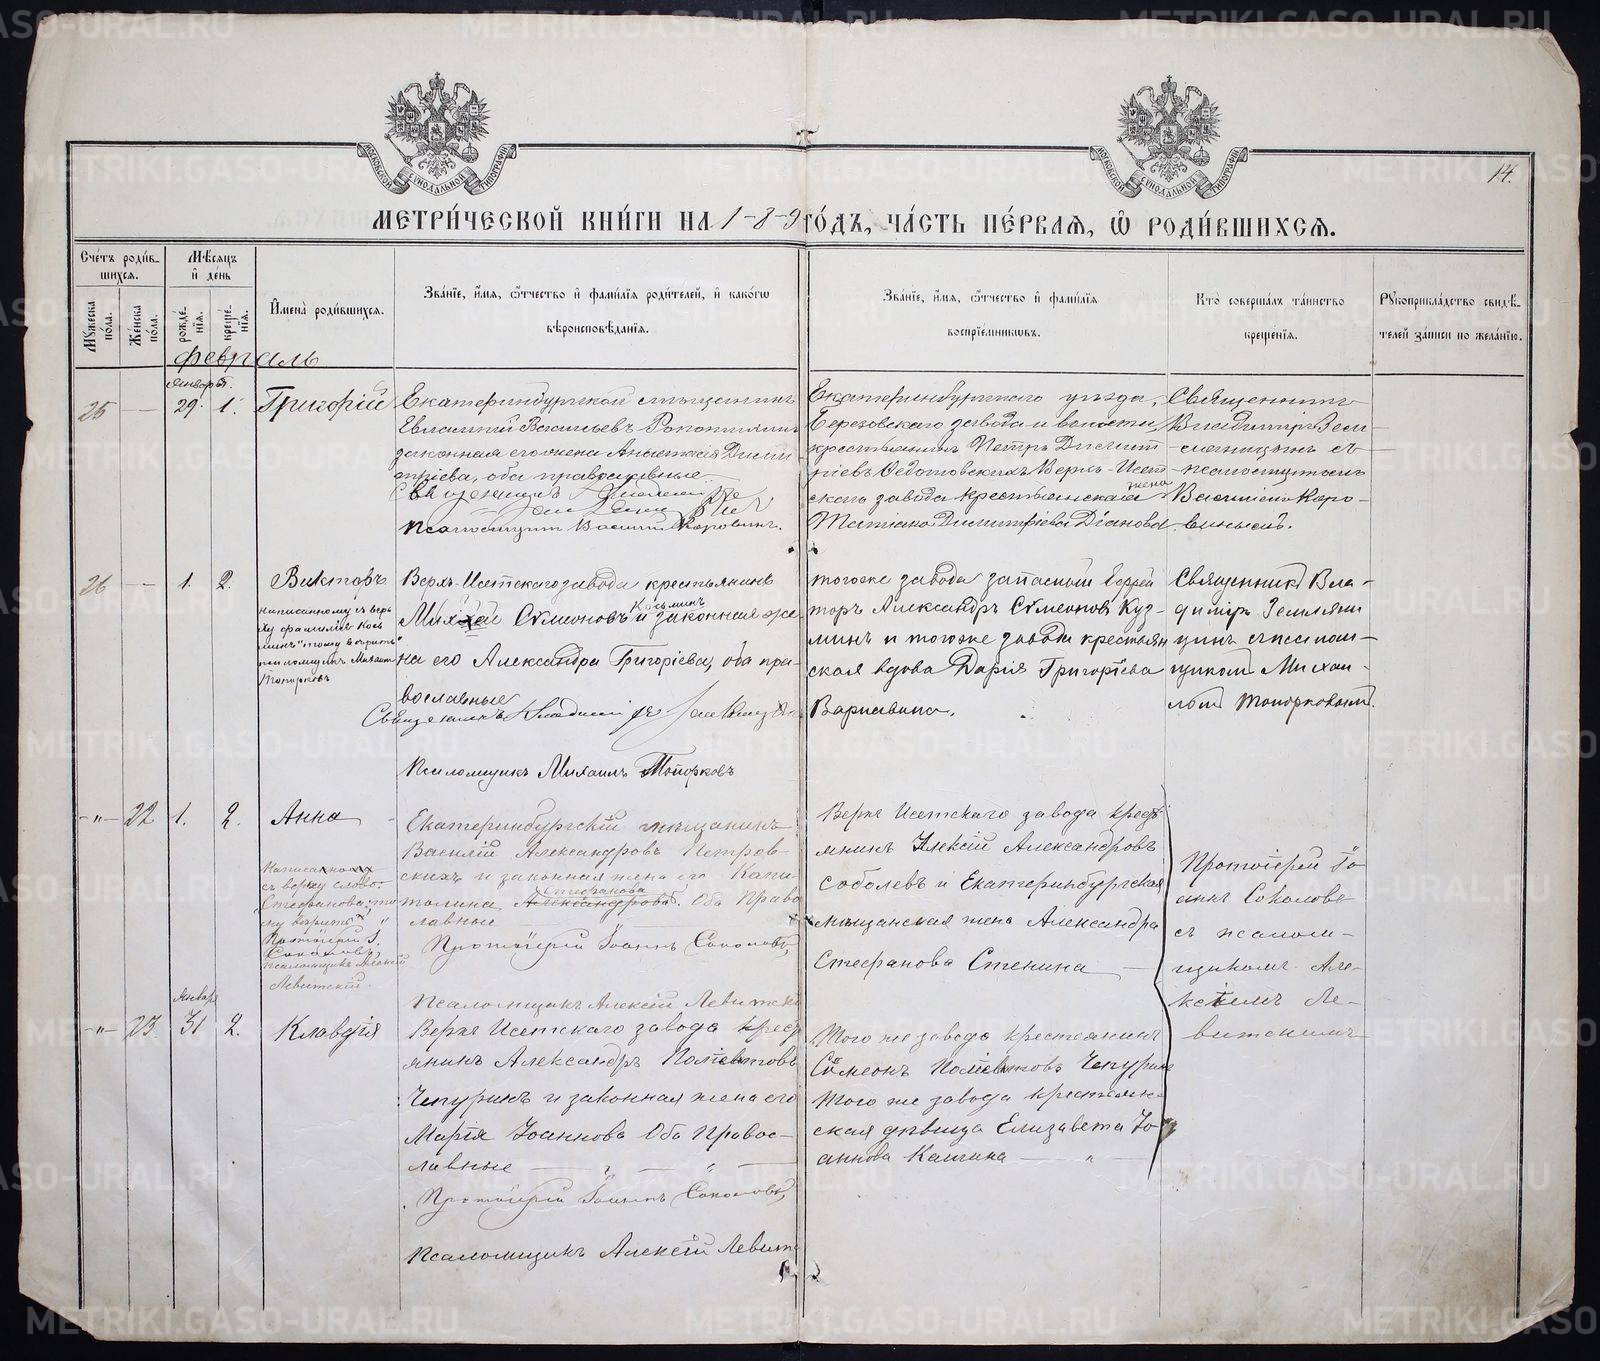 МОСКОВСКОЙ СѴНОДАЛЬНОЙ ТИПОГРАФІИ
МОСКОВСКОЙ СѴНОДАЛЬНОЙ ТИПОГРАФІИ
14.
МЕТРИ́ЧЕСКОЙ КНИ́ГИ НА 1-8-9 ГО́ДЪ, ЧА́СТЬ ПЕ́РВАѦ, Ѽ РОДИ́ВШИХСѦ.
Сче́тъ роди́в-
шихсѧ.
Мꙋ́жеска по́ла.
Же́нска по́ла.
Мѣ́сѧцъ
и҆ де́нь
рожде́-
нїѧ.
креще́-
нїѧ.
И҆мена̀ роди́вшихсѧ.
Зва́нїе, и҆́мѧ, ѻ҆́тчество и҆ фами́лїѧ роди́телей, и҆ како́гѡ
вѣроисповѣ́данїѧ.
Зва́нїе, и҆́мѧ, ѻ҆́тчество и҆ фами́лїѧ
воспрїе́мникѡвъ.
Кто̀ соверша́лъ та́инство
креще́нїѧ.
Рꙋкоприкла́дство свидѣ́-
телей за́писи по жела́нїю.
Февраль
25 — Января 29. 1. Григорій
Екатеринбургской мѣщанинъ
Евлампій Васильевъ
законная его жена Анастасія Дими
тріева, оба православные
Священникъ
Псаломщикъ Василій Коровинъ.
Екатеринбургскаго уѣзда,
Березовскаго завода и волости
крестьянинъ Петръ Димит
ріевъ Ѳедотовскихъ Верхъ-Исет
скаго завода крестьянская жена
Татіана Димитріева Діанова
Священникъ
Владиміръ Земл-
яницынъ съ
псаломщикомъ
Василіемъ Коро-
винымъ.
26 — 1. 2. Викторъ
Написанному съ вер
ху фамиліи Кось
минъ" тому вѣрить
псаломщикъ Михаилъ
Топорковъ
Верхъ-Исетскаго завода крестьянинъ
Михаилъ Сѵмеоновъ Косьминъ и законная же
на его Александра Григоріева, оба пра-
вославные
Священникъ Владиміръ Земляницынъ
Псаломщикъ Михаилъ Топорковъ
тогоже завода запасный ефрей
торъ Александръ Сѵмеоновъ Куз-
минъ и тогоже завода крестьян
ская вдова Дарія Григоріева
Варнавина.
Священникъ Вла-
диміръ Земляни
цынъ съ псалом-
щикомъ Михаи-
ломъ Топорковымъ.
-"- 22 1. 2. Анна
Написанному
съ верху слово:
"Стефанова", то
му вѣрить
Протоіерей І.
Соколовъ,
псаломщикъ Алексій
Левитскій.
Екатеринбургскій мѣщанинъ
Василій Александровъ Петров-
скихъ и законная жена его Капи
толина Александрова Стефанова. Оба Право
лавные
Протоіерей Іоаннъ Соколовъ,
Псаломщикъ Алексій Левитскі
Верхъ Исетскаго завода крест
янинъ Алексій Александровъ
Соболевъ и Екатеринбургская
мѣщанская жена Александра
Стефанова Стенина —
Протоіерей Іо
аннъ Соколовъ
съ псалом-
щикомъ Але-
ксіемъ Ле-
витскимъ
-"- 23. Января 31 2. Клавдія
Верхъ Исетскаго завода крест
янинъ Александръ Поліевктовъ
Чепуринъ и законная жена его
Марія Іоаннова Оба Правос-
лавные — " — " —
Протоіерей Іоаннъ Соколовъ,
Псаломщикъ Алексій Левитс
Того же завода крестьянинъ
Сѵмеонъ Поліевктовъ Чепурин
Того же завода крестьян-
ская дѣвица Елизавета Іо
аннова — " —